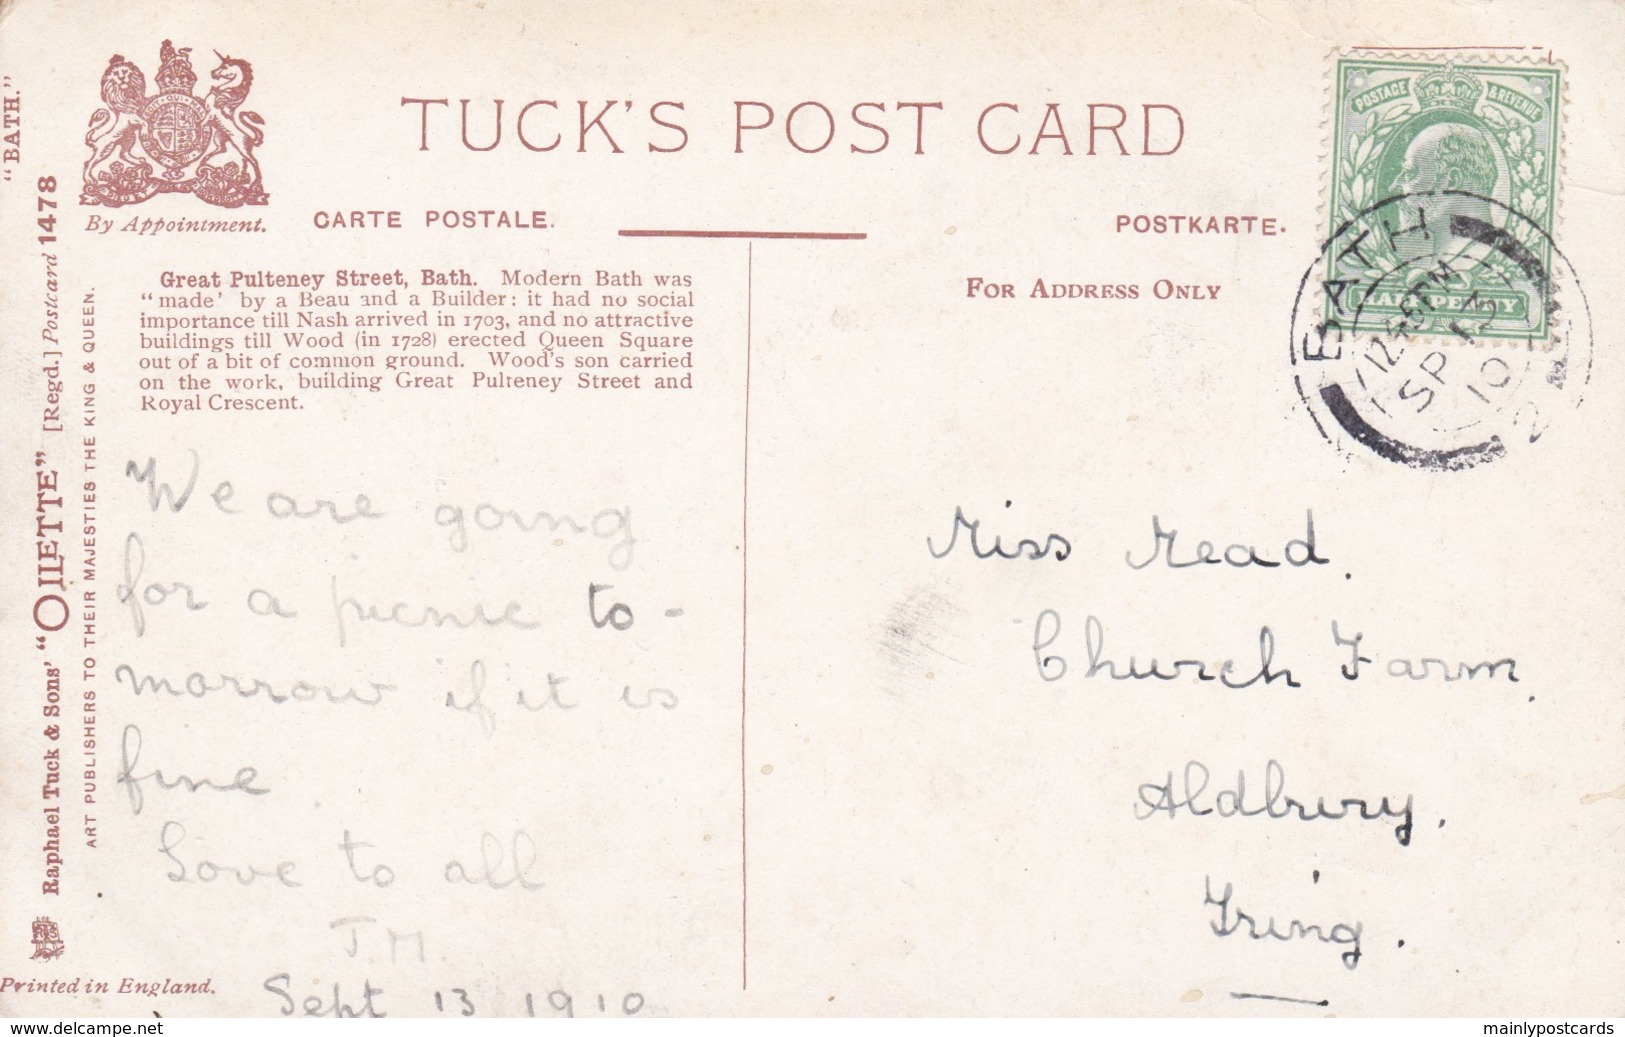 "BATH."
Raphael Tuck & Sons' "OILETTE" [Regd.] Postcard 1478
ART PUBLISHERS TO THEIR MAJESTIES THE KING & QUEEN.
By Appointment.
TUCK'S POST CARD
CARTE POSTALE.
POSTKARTE.
Great Pulteney Street, Bath. Modern Bath was
"made' by a Beau and a Builder: it had no social
importance till Nash arrived in 1703, and no attractive
buildings till Wood (in 1728) erected Queen Square
out of a bit of common ground. Wood's son carried
on the work, building Great Pulteney Street and
Royal Crescent.
We are going
for a picnic to-
morrow if it is
fine
Love to all
J.M.
Sept 13 1910
Printed in England.
FOR ADDRESS ONLY
POSTAGE & REVENUE
HALFPENNY
BATH
12 45 PM
SP 13
10
2
Miss Mead.
Church Farm.
Aldbury.
Tring.
www.delcampe.net
mainlypostcards